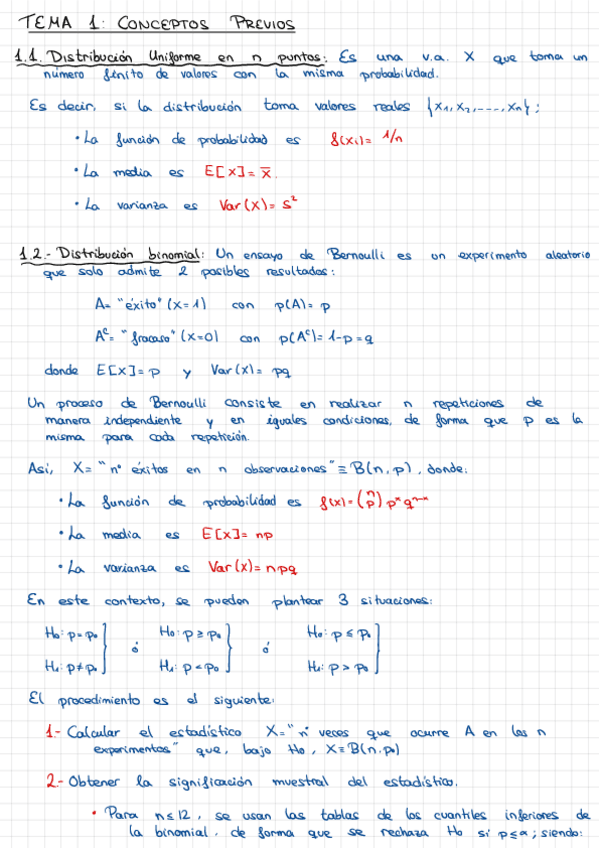 TEMA 1: CONCEPTOS PREVIOS
1.1. Distribución Uniforme en n puntos: Es una v.a. X que toma un
número finito de valores con la misma probabilidad.
Es decir, si la distribución toma valores reales {x₁, x₂, ----, xn};
• La función de probabilidad es f(xi) = 1/n
• La media es E[X] = x̅.
• La varianza es Var(X) = s²
1.2.- Distribución binomial: Un ensayo de Bernoulli es un experimento aleatorio
que solo admite 2 posibles resultados:
A = "éxito" (x=1) con p(A) = p
Aᶜ = "fracaso" (x=0) con p(Aᶜ) = 1-p = q
donde E[X] = p y Var(X) = pq
Un proceso de Bernoulli consiste en realizar n repeticiones de
manera independiente y en iguales condiciones, de forma que p es la
misma para cada repetición.
Así, X = "nº éxitos en n observaciones" ≡ B(n,p), donde:
• La función de probabilidad es f(x) = (n p) pˣ qⁿ⁻ˣ
• La media es E[X] = np
• La varianza es Var(X) = npq
En este contexto, se pueden plantear 3 situaciones:
H₀: p = p₀ } ó H₀: p ≥ p₀ } ó H₀: p ≤ p₀ }
H₁: p ≠ p₀ H₁: p < p₀ H₁: p > p₀
El procedimiento es el siguiente:
1.- Calcular el estadístico X = "nº veces que ocurre A en los n
experimentos" que, bajo H₀, X ≡ B(n,p₀)
2.- Obtener la significación muestral del estadístico.
• Para n ≤ 12, se usan las tablas de los cuantiles inferiores de
la binomial, de forma que se rechaza H₀ si p ≤ α; siendo: